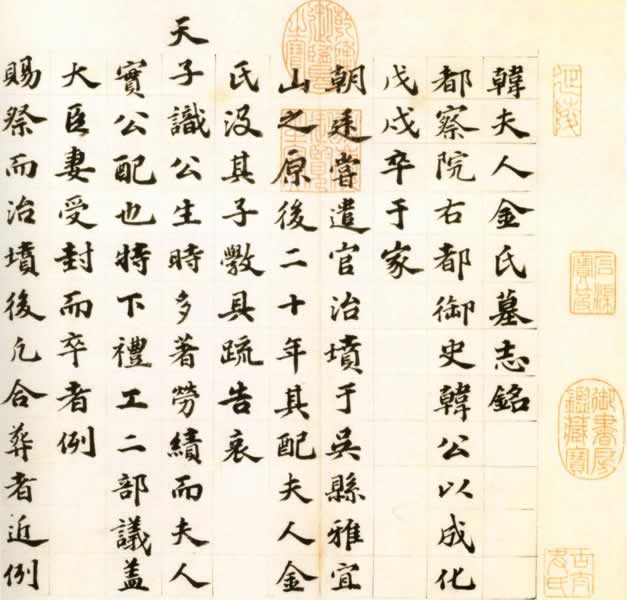 韓夫人金氏墓志銘
都察院右都御史韓公以成化
戊戌卒于家
朝廷嘗遣官治墳于吳縣雅宜
山之原後二十年其配夫人金
氏没其子斆具疏告哀
天子識公生時多著勞績而夫人
實公配也特下禮工二部議蓋
大臣妻受封而卒者例
賜祭而治墳後凡合葬者近例
石渠寶笈
御書房鑑藏寶
乾隆御覽之寶